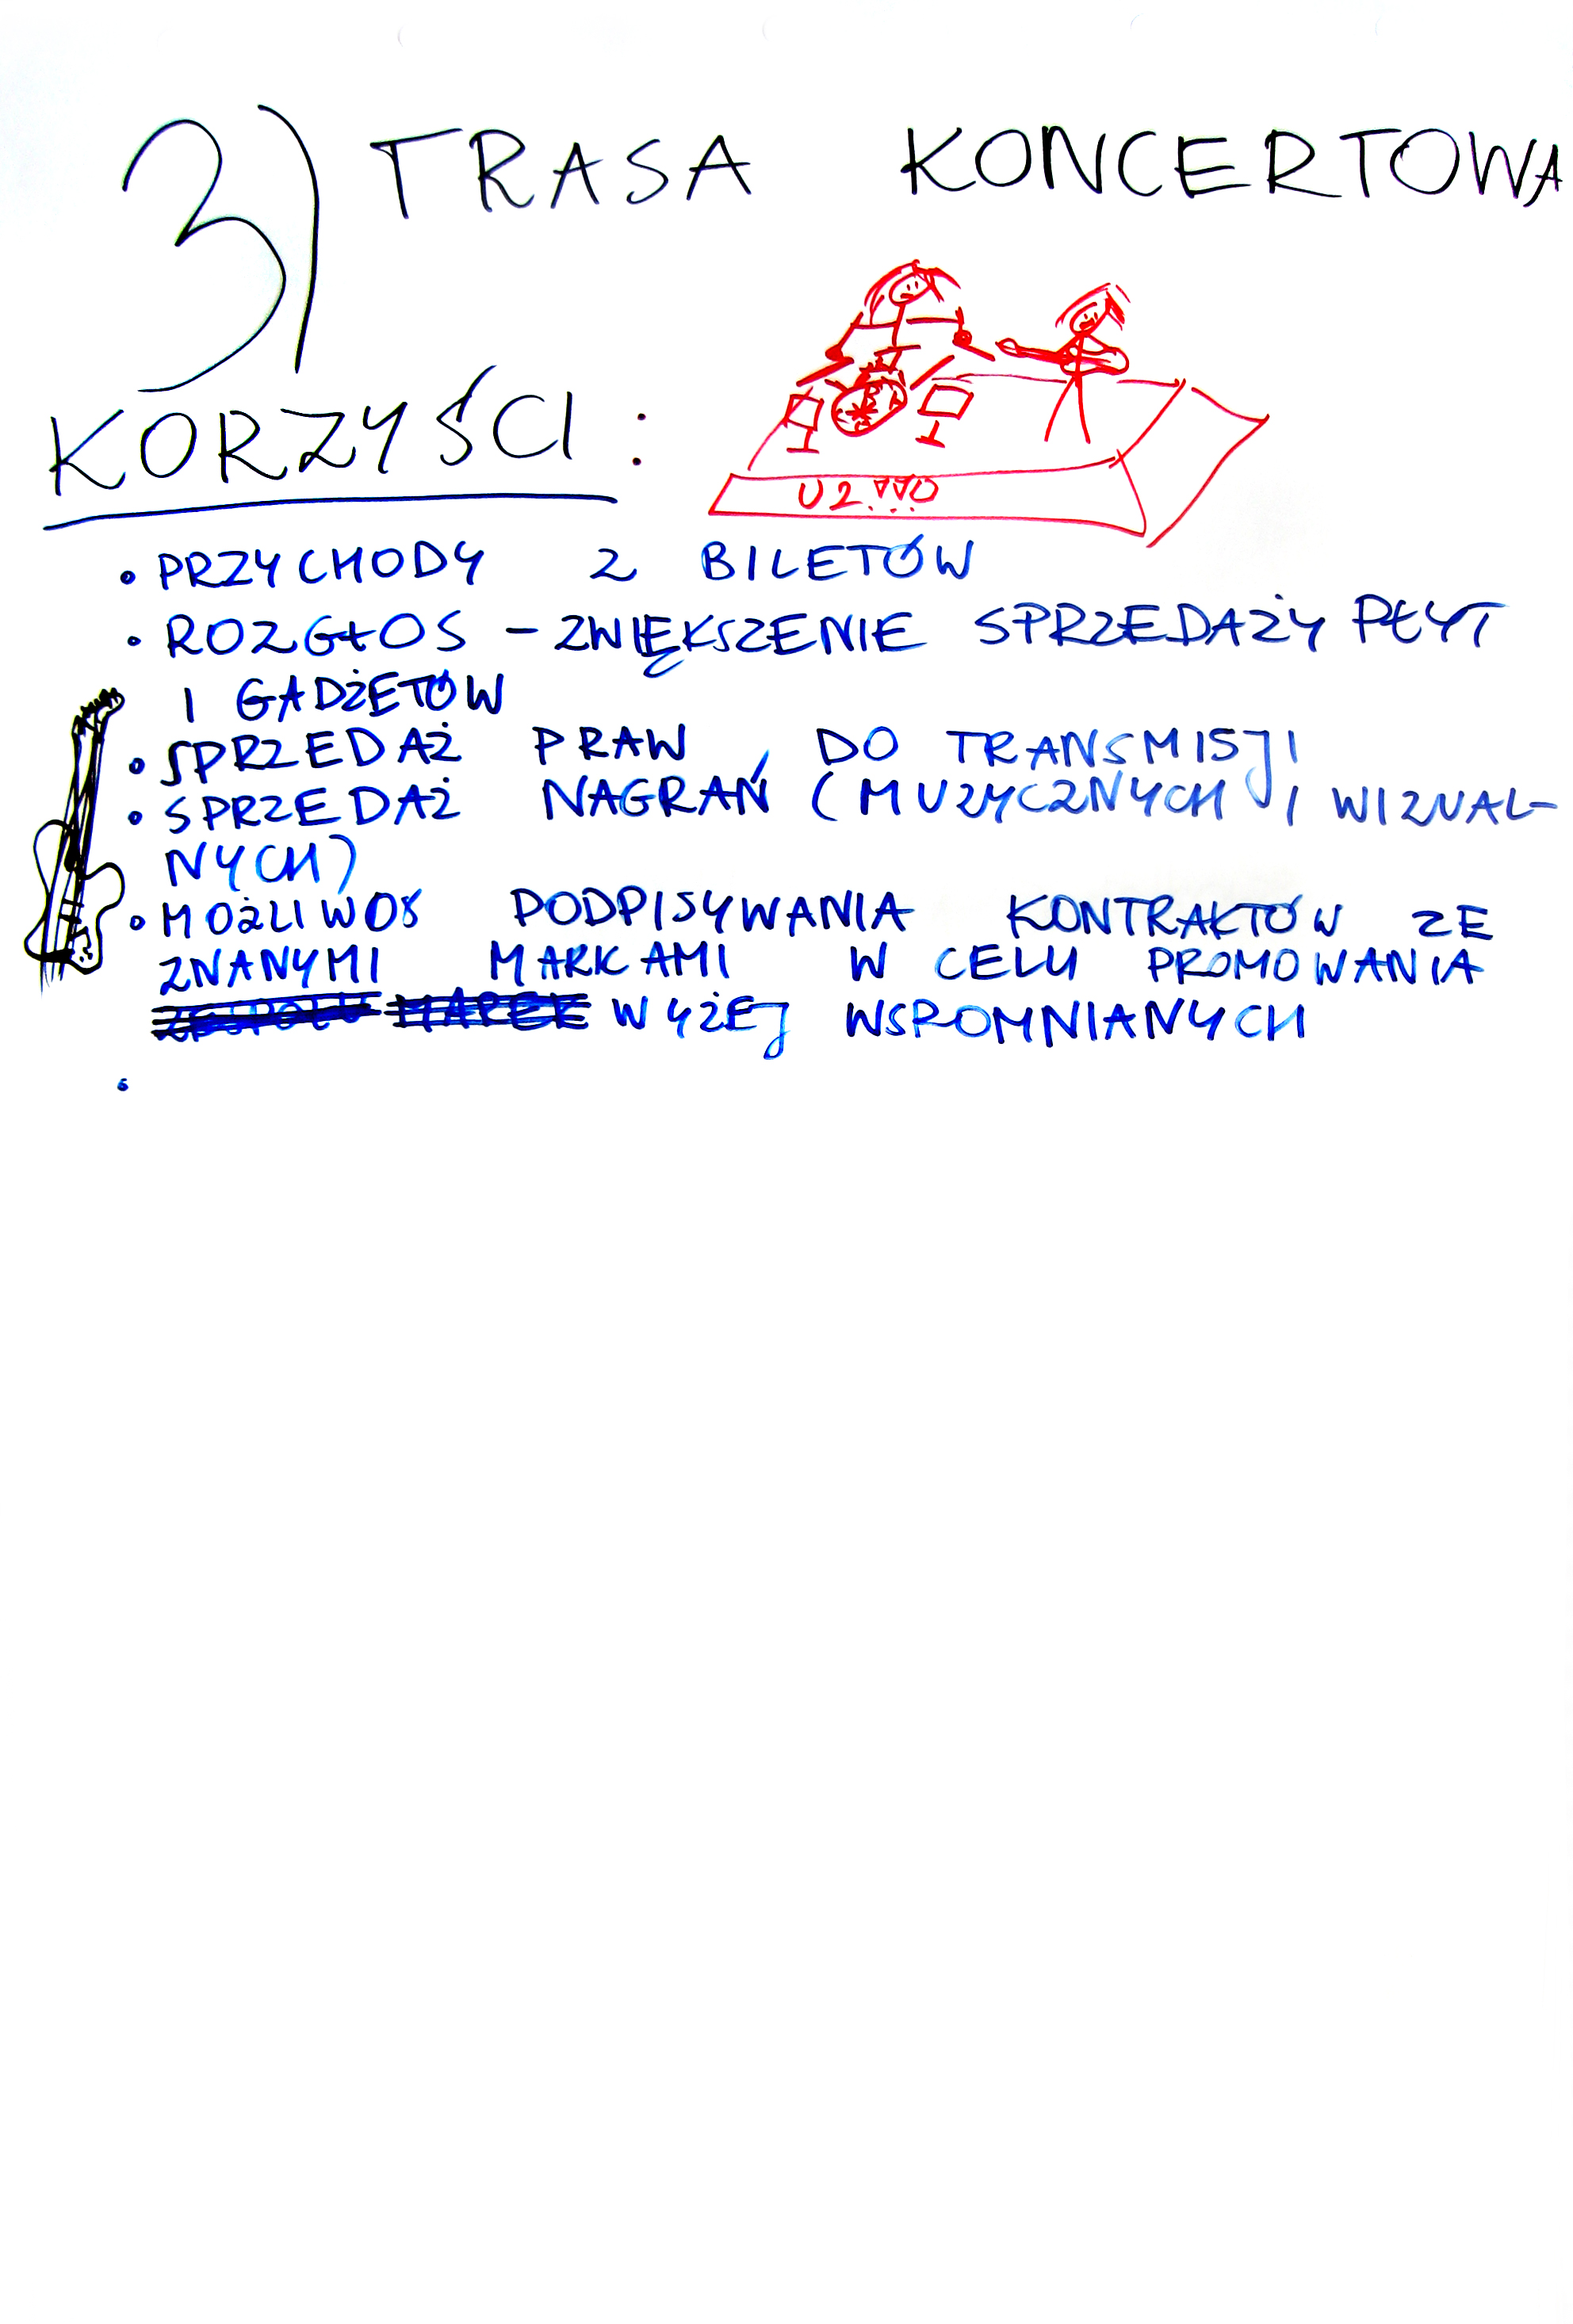 3) TRASA KONCERTOWA
KORZYŚCI:
U2
• PRZYCHODY Z BILETÓW
• ROZGŁOS - ZWIĘKSZENIE SPRZEDAŻY PŁYT
I GADŻETÓW
• SPRZEDAŻ PRAW DO TRANSMISJI
• SPRZEDAŻ NAGRAŃ (MUZYCZNYCH I WIZUAL-
NYCH)
• MOŻLIWOŚ PODPISYWANIA KONTRAKTÓW ZE
ZNANYMI MARKAMI W CELU PROMOWANIA
WYŻEJ WSPOMNIANYCH
•